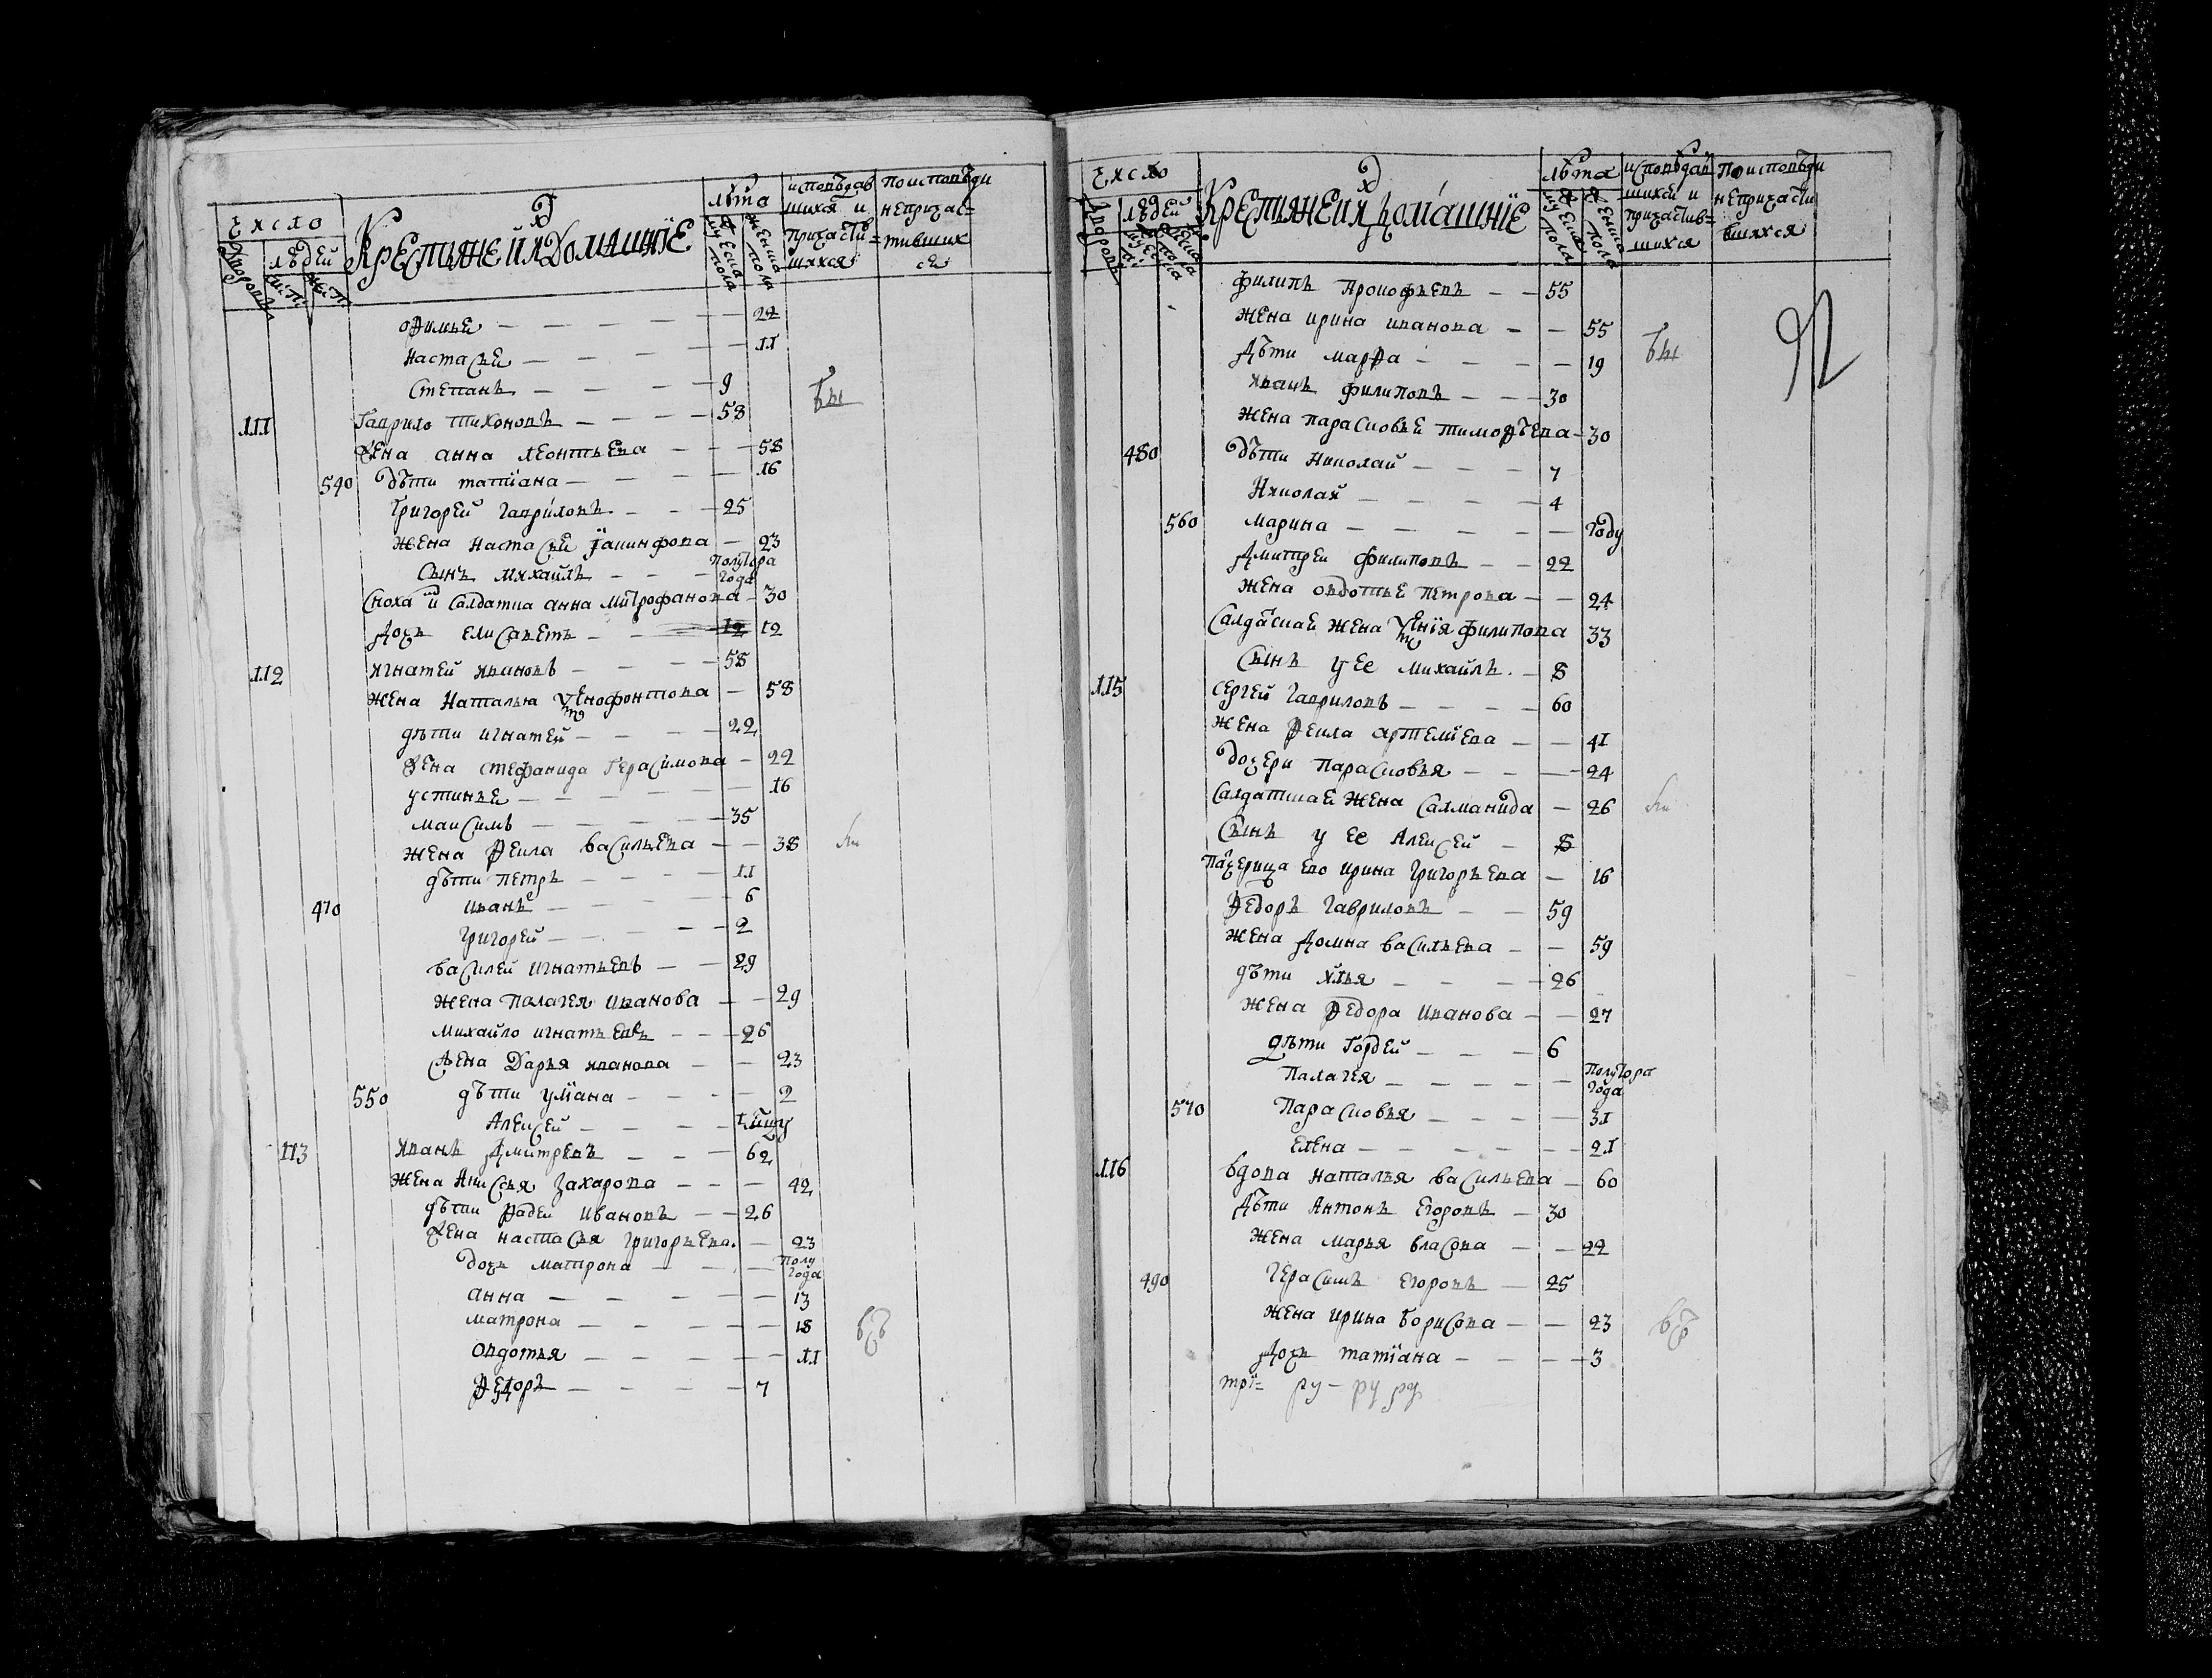 Число
Крестьяне и ихъ домашнïе
лѣта
исповѣдав
шихся и
причасти=
шихся
по исповѣди
непричас=
тивших
ся
дворовъ
людей
м: п:
ж: п:
мужеска пола
женска пола
Офимья — 22
Настасья — 11
Степанъ — 9
бы
111 Гаврило Тихоновъ — 58
жена Анна Леонтьева — 58
540 дѣти Татïана — 16
Григорей Гавриловъ — 25
жена Настасья Iакинфова — 23
сынъ Михайлъ — полутора года
сноха и салдатка Анна Митрофанова — 30
дочь Елисаветъ — 12 12
112 Игнатей Ивановъ — 58
жена Наталья Ѯенофонтова — 58
дѣти Игнатей — 22
жена Стефанида Герасимова — 22
Устинья — 16
Максимъ — 35
жена Фекла Васильева — 38
дѣти Петръ — 11
470 Иванъ — 6
Григорей — 2
Василей Игнатьевъ — 29
жена Палагея Иванова — 29
Михайло Игнатьевъ — 26
жена Дарья Иванова — 23
550 дѣти Улïана — 2
Алексей —
113 Иванъ Дмитревъ — 62
жена Анисья Захарова — 42
дѣти Фадей Ивановъ — 26
жена Настасья Григорьева — 23
дочь Матрона — полу года
Анна — 13
Матрона — 18
Овдотья — 11
Федоръ — 7
Число
Крестьяне и их домашнïе
лѣта
исповѣдав
шихся и
причастив=
шихся
По исповѣди
непричасти
вшихся
дворовъ
людей
мужеска пола
женска пола
Филипъ Прокофьевъ — 55
жена Ирина Иванова — 55
дѣти Марфа — 19
бы
Иванъ Филиповъ — 30
жена Парасковья Тимофѣева — 30
480 дѣти Николай — 7
Николай — 4
560 Марина — году
Дмитрей Филиповъ — 22
жена Овдотья Петрова — 24
салдацкая жена Ѯенïя Филипова 33
сынъ у ее Михайлъ — 8
115 Сергей Гавриловъ — 60
жена Фекла Артемïева — 41
дочери Парасковья — 24
салдатцкая жена Салманида — 26
сынъ у ее Алексей — 8
пачерица ево Ирина Григорьева — 16
Федоръ Гавриловъ — 59
жена Домна Васильева — 59
дѣти Илья — 26
жена Федора Иванова — 27
дѣти Гордей — 6
Палагея — полутора года
570 Парасковья — 31
Елена — 21
116 вдова Наталья Васильева — 60
дѣти Антонъ Егоровъ — 30
жена Марья Власова — 22
490 Герасимъ Егоровъ — 25
жена Ирина Борисова — 23
дочь Татïана — 3
трï= ру — ру ру